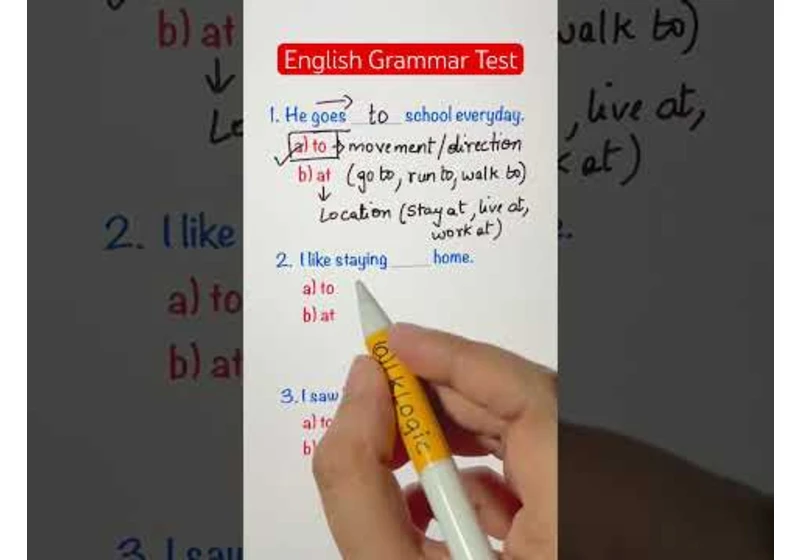 English Grammar Test
1. He goes to school everyday.
a) to → movement/direction
b) at (go to, run to, walk to)
↓
Location (Stay at, live at,
work at)
2. I like staying ____ home.
a) to
b) at
3. I saw
a) to
b)
TalkLogic
b) at
↓
Lo
2. I like
a) to
b) at
3. I saw
walk to)
, live at,
k at)
e.